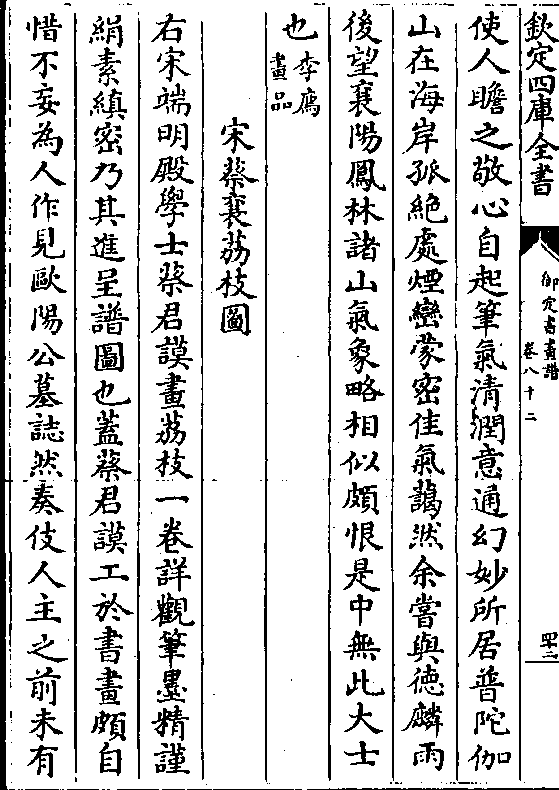 欽定四庫全書
御定書畫譜
卷八十二
四十二
使人瞻之敬心自起筆氣清潤意通幻妙所居普陀伽
山在海岸孤絶處煙巒蒙密佳氣藹然余嘗與德麟雨
後望襄陽鳳林諸山氣象略相似頗恨是中無此大士
也李廌畫品
宋蔡襄荔枝圖
右宋端明殿學士蔡君謨畫荔枝一卷詳觀筆墨精謹
絹素縝密乃其進呈譜圖也蓋蔡君謨工於書畫頗自
惜不妄為人作見歐陽公墓誌然奏伎人主之前未有